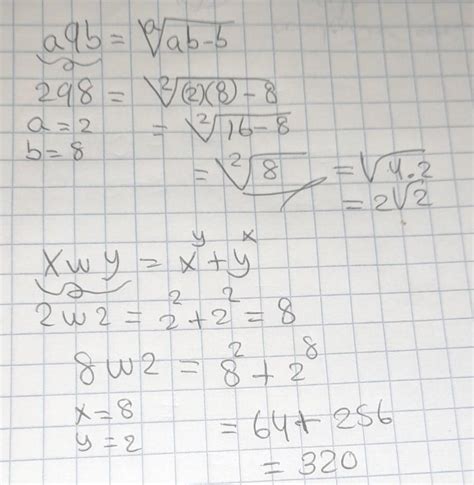 aqb = ᵃ√ab-b
2q8 = ²√(2)(8)-8
a=2 = ²√16-8
b=8
= ²√8 = √4.2
= 2√2
xwy = x^y + y^x
2w2 = 2² + 2² = 8
8w2 = 8² + 2⁸
x=8
y=2 = 64 + 256
= 320